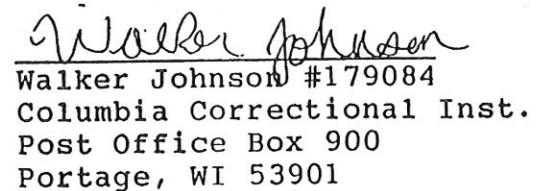 Walker Johnson
Walker Johnson #179084
Columbia Correctional Inst.
Post Office Box 900
Portage, WI 53901